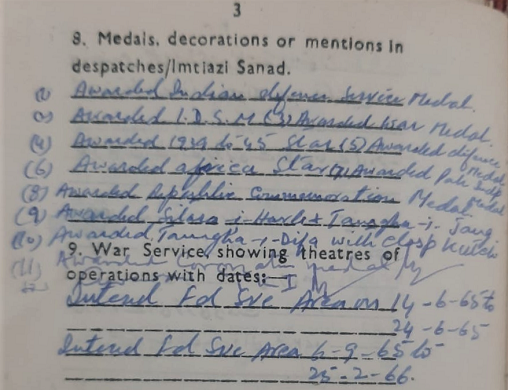 3
8. Medals, decorations or mentions in
despatches/Imtiazi Sanad.
Awarded Indian defence Service Medal.
Awarded I.D.S.M (3) Awarded War Medal.
(4) Awarded 1939 to 45 Star (5) Awarded defence Medal
(6) Awarded africa Star (7) Awarded Pak
(8) Awarded Republic Commemoration Medal.
(9) Awarded Sitara-i-Harb & Tamgha-i-Jang
(10) Awarded Tamgha-i-Difa with Clasp Kutch
(11)
9. War Service, showing theatres of
operations with dates:—
Intered Fd Sve Area on 14-6-65 to
24-6-65
Intered Fd Sve Area 6-9-65 to
25-2-66.